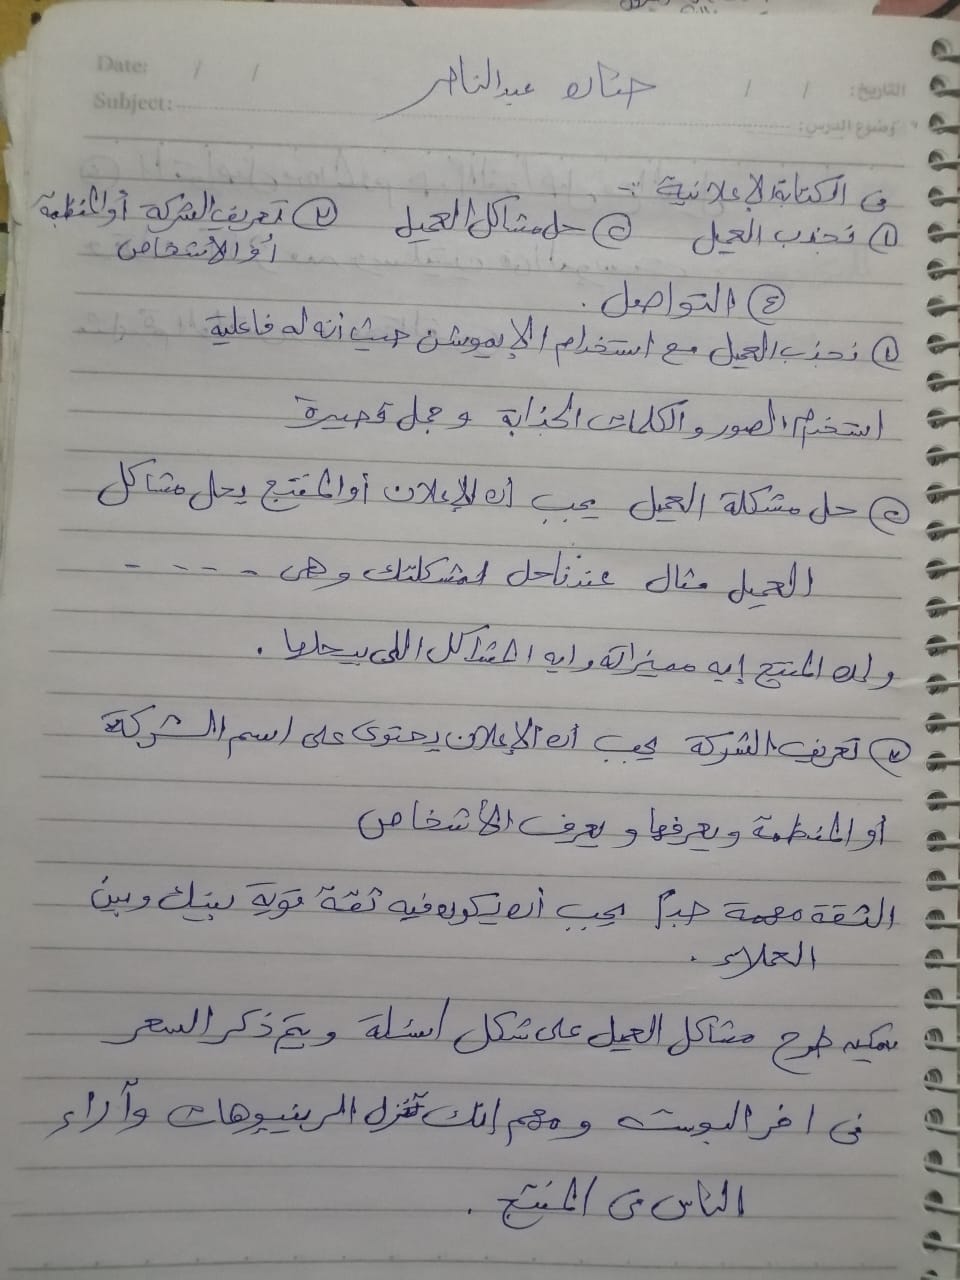 Date: / /
التاريخ: / /
حنان عبدالناصر
Subject:
موضوع الدرس:
فى الكتابة الإعلانية :-
١ نجذب العميل ٢ حل مشاكل العميل ٣ تعريف الشركة أو المنظمة
أو الأشخاص
٤ التواصل .
١ نجذب العميل مع استخدام الإيموشن حيث أنه له فاعلية
استخدام الصور والكلمات الجذابة وجمل قصيرة
٢ حل مشكلة العميل يجب أن الإعلان أو المنتج يحل مشاكل
العميل مثال عندنا حل لمشكلتك وهى - - - -
وله المنتج إيه مميزاته وايه المشاكل اللى بيحلها .
٣ تعريف الشركة يجب أن الإعلان يحتوى على اسم الشركة
أو المنظمة ويعرفها ويعرف الأشخاص
الثقة مهمة جداً يجب أن يكون فيه ثقة قوية بينك وبين
العملاء .
يمكن طرح مشاكل العميل على شكل أسئلة ويتم ذكر السعر
فى اخر البوست ومهم إنك تنزل الريفيوهات وآراء
الناس فى المنتج .